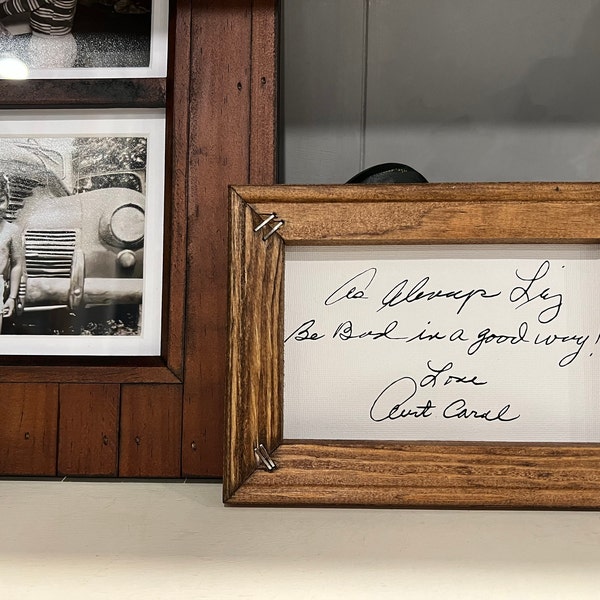 As Always Liz
Be Bad in a good way!
Love
Aunt Carol